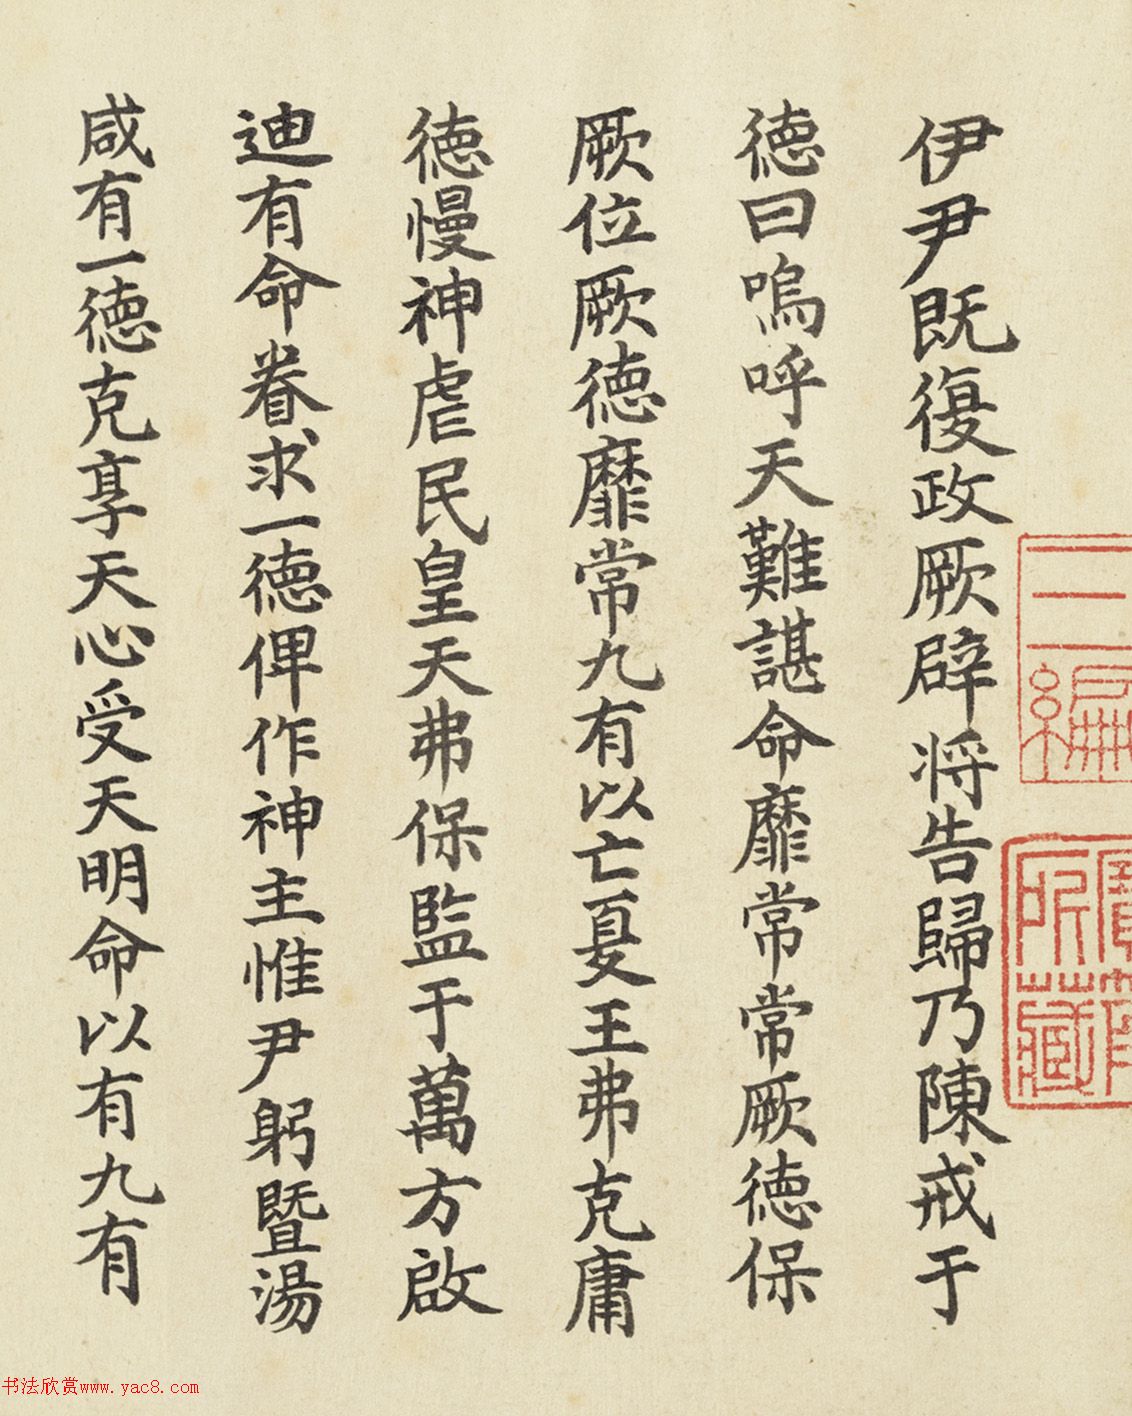 伊尹既復政厥辟将告歸乃陳戒于
德曰嗚呼天難諶命靡常常厥德保
厥位厥德靡常九有以亡夏王弗克庸
德慢神虐民皇天弗保監于萬方啟
迪有命眷求一德俾作神主惟尹躬暨湯
咸有一德克享天心受天明命以有九有
三編
所藏
书法欣赏www.yac8.com